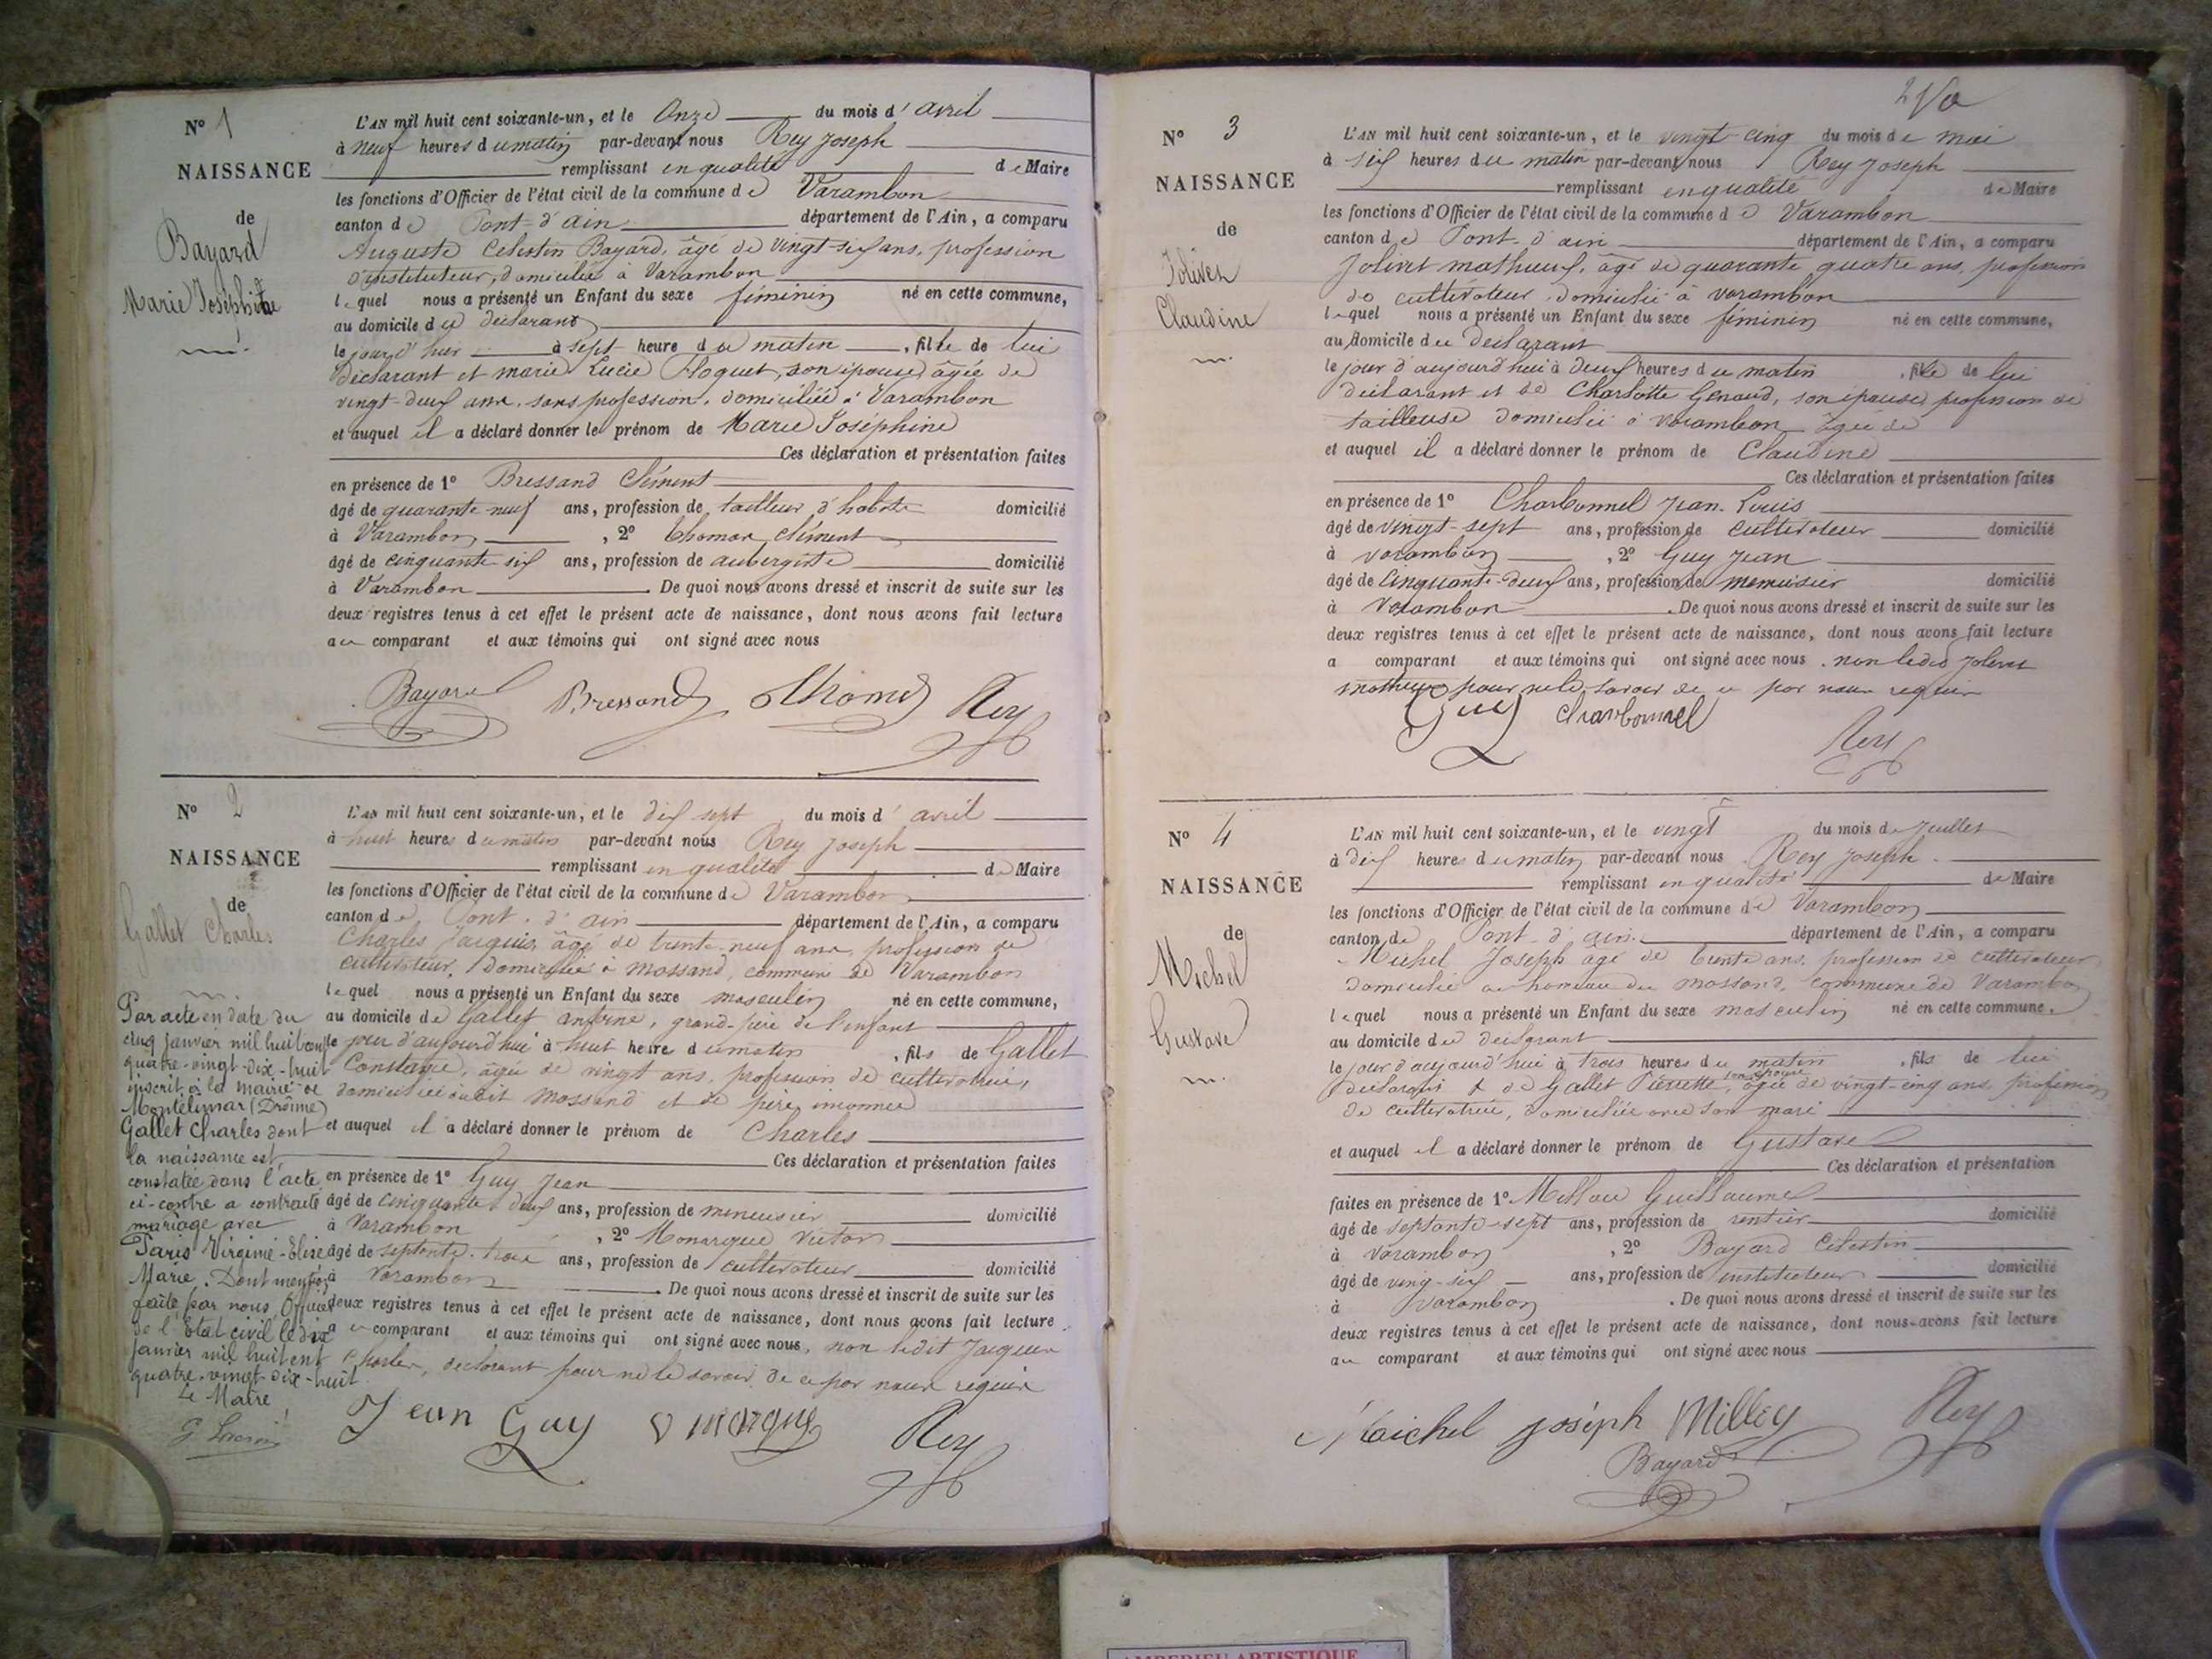 N° 1
NAISSANCE
de
Bayard
Marie Joséphine
L'AN mil huit cent soixante-un, et le Onze du mois d' avril
à neuf heures du matin par-devant nous Rey Joseph
remplissant en qualité de Maire
les fonctions d'Officier de l'état civil de la commune de Varambon
canton de Pont-d'ain département de l'Ain, a comparu
Auguste Célestin Bayard, âgé de vingt-six ans, profession
d'instituteur, domicilié à Varambon
lequel nous a présenté un Enfant du sexe féminin né en cette commune,
au domicile du déclarant
le jour d'hier à sept heure du matin, fille de lui
déclarant et marie Lucie Floquet, son épouse, âgée de
vingt-deux ans, sans profession, domiciliée à Varambon
et auquel il a déclaré donner le prénom de Marie Joséphine
Ces déclaration et présentation faites
en présence de 1° Bressand Clément
âgé de quarante-neuf ans, profession de tailleur d'habits domicilié
à Varambon, 2° Thomas Clément
âgé de cinquante-six ans, profession de aubergiste domicilié
à Varambon. De quoi nous avons dressé et inscrit de suite sur les
deux registres tenus à cet effet le présent acte de naissance, dont nous avons fait lecture
au comparant et aux témoins qui ont signé avec nous
Bayard Bressand Thomas Rey
N° 2
NAISSANCE
de
Gallet Charles
L'AN mil huit cent soixante-un, et le dix sept du mois d' avril
à huit heures du matin par-devant nous Rey Joseph
remplissant en qualité de Maire
les fonctions d'Officier de l'état civil de la commune de Varambon
canton de Pont-d'ain département de l'Ain, a comparu
Charles Jacquis, âgé de trente-neuf ans, profession de
cultivateur, domicilié à Mossand, commune de Varambon
lequel nous a présenté un Enfant du sexe masculin né en cette commune,
au domicile de Gallet antoine, grand-père de l'enfant
le jour d'aujourd'hui à huit heure du matin, fils de Gallet
Constance, âgée de vingt ans, profession de cultivatrice,
domiciliée audit Mossand et de père inconnu
et auquel il a déclaré donner le prénom de Charles
Ces déclaration et présentation faites
en présence de 1° Guy Jean
âgé de cinquante deux ans, profession de menuisier domicilié
à Varambon, 2° Monarque Victor
âgé de septante-trois ans, profession de cultivateur domicilié
à Varambon. De quoi nous avons dressé et inscrit de suite sur les
deux registres tenus à cet effet le présent acte de naissance, dont nous avons fait lecture
au comparant et aux témoins qui ont signé avec nous, non ledit Jacquis
Charles, déclarant pour ne le savoir de ce par nous requis
Jean Guy Rey
Par acte en date du
cinq janvier mil huit cent
quatre-vingt-dix-huit
inscrit à la mairie de
Montélimar (Drôme)
Gallet Charles dont
la naissance est
constatée dans l'acte
ci-contre a contracté
mariage avec
Paris Virginie-Elise
Marie. Dont mention
faite par nous, Officier
de l'Etat civil le dix
janvier mil huit cent
quatre-vingt-dix-huit
Le Maire,
N° 3
NAISSANCE
de
Jolivet
Claudine
L'AN mil huit cent soixante-un, et le vingt-cinq du mois de mai
à six heures du matin par-devant nous Rey Joseph
remplissant en qualité de Maire
les fonctions d'Officier de l'état civil de la commune de Varambon
canton de Pont-d'ain département de l'Ain, a comparu
Jolivet mathieux, âgé de quarante quatre ans, profession
de cultivateur, domicilié à varambon
lequel nous a présenté un Enfant du sexe féminin né en cette commune,
au domicile du déclarant
le jour d'aujourd'hui à deux heures du matin, fille de lui
déclarant et de Charlotte Genaud, son épouse, profession de
tailleuse domiciliée à Varambon âgée de
et auquel il a déclaré donner le prénom de Claudine
Ces déclaration et présentation faites
en présence de 1° Charbonnel Jean-Louis
âgé de vingt-sept ans, profession de cultivateur domicilié
à varambon, 2° Guy Jean
âgé de cinquante-deux ans, profession de menuisier domicilié
à Varambon. De quoi nous avons dressé et inscrit de suite sur les
deux registres tenus à cet effet le présent acte de naissance, dont nous avons fait lecture
a comparant et aux témoins qui ont signé avec nous. non ledit Jolivet
mathieux pour ne le savoir de ce par nous requis
Guy Charbonnel Rey
N° 4
NAISSANCE
de
Michel
Gustave
L'AN mil huit cent soixante-un, et le vingt du mois de Juillet
à dix heures du matin par-devant nous Rey Joseph
remplissant en qualité de Maire
les fonctions d'Officier de l'état civil de la commune de Varambon
canton de Pont-d'ain département de l'Ain, a comparu
Michel Joseph âgé de trente ans, profession de cultivateur
domicilié au hameau du Mossand, commune de Varambon
lequel nous a présenté un Enfant du sexe masculin né en cette commune,
au domicile du déclarant
le jour d'aujourd'hui à trois heures du matin, fils de lui
déclarant & de Gallet Pierrette, son épouse âgée de vingt-cinq ans profession
de cultivatrice, domiciliée avec son mari
et auquel il a déclaré donner le prénom de Gustave
Ces déclaration et présentation
faites en présence de 1° Guillaume
âgé de septante-sept ans, profession de rentier domicilié
à varambon, 2° Bayard Célestin
âgé de ving-six ans, profession de instituteur domicilié
à varambon. De quoi nous avons dressé et inscrit de suite sur les
deux registres tenus à cet effet le présent acte de naissance, dont nous avons fait lecture
au comparant et aux témoins qui ont signé avec nous
Maichel joséph Milley Rey
Bayard
AMBERIEU ARTISTIQUE